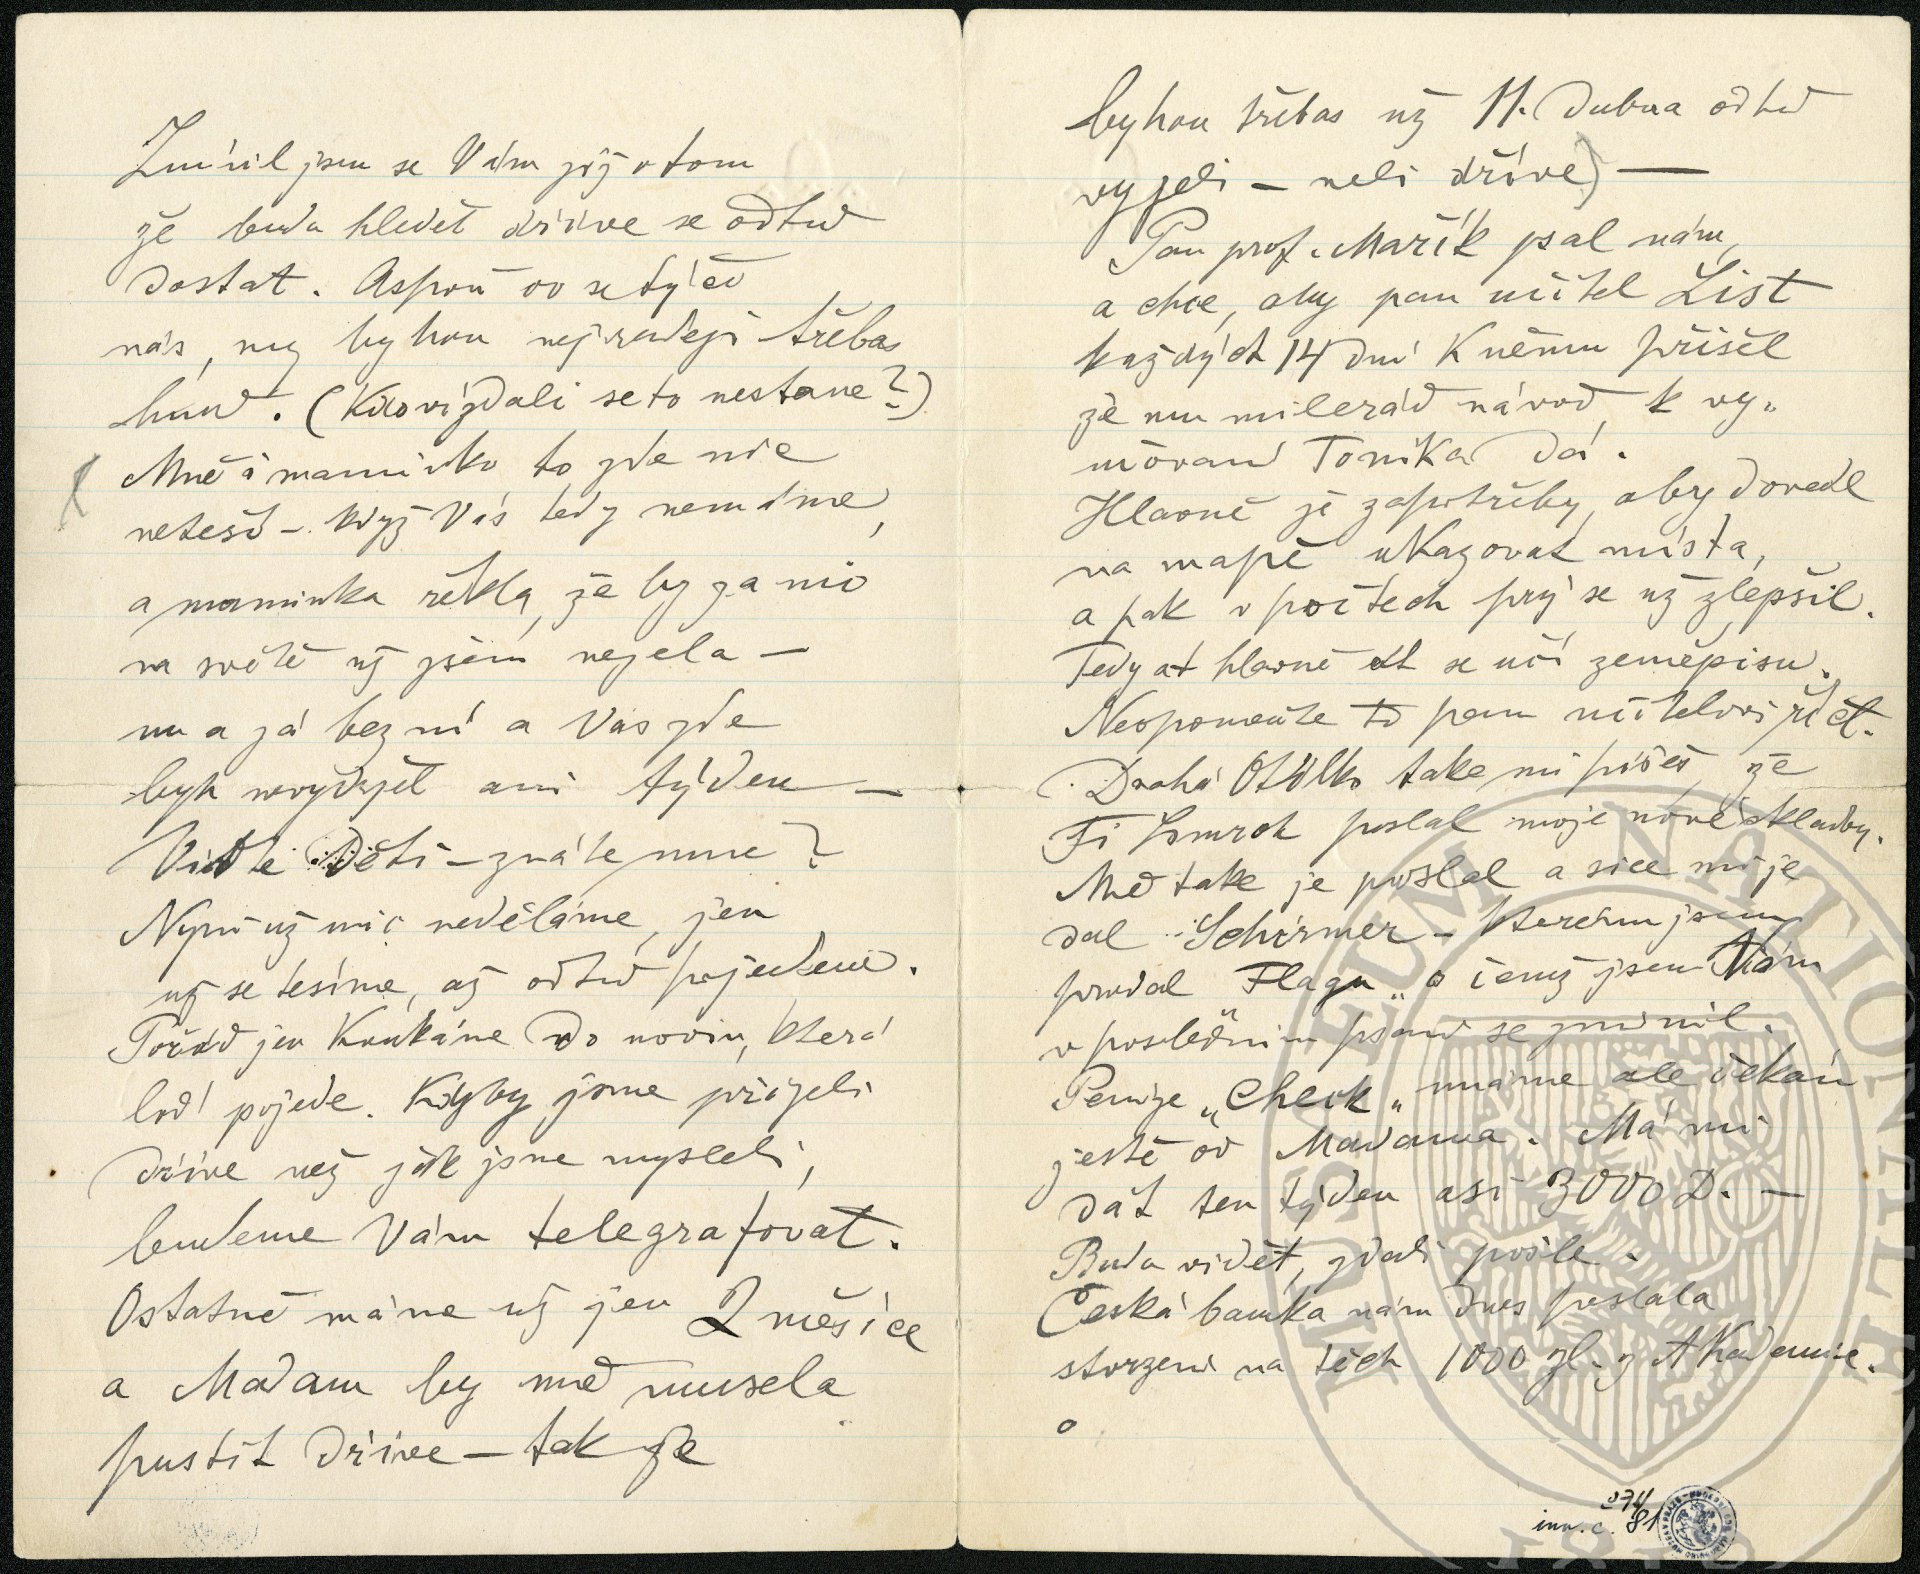 Zmínil jsem se Vám již o tom
že budu hledět dříve se odtud
dostat. Aspoň co se týče
nás, my bychom nejraději třebas
hned. (Kdo ví zdali se to nestane?)
Mně a maminku to zde nic
netěší – když Vás tedy nemáme,
a maminka řekla, že by za nic
na světě už jsem nejela –
nu a já bez ní a Vás zde
bych nevydržel ani týden –
Viďte Děti – znáte mne?
Nyní už nic neděláme, jen
už se těšíme, až odtud pojedeme.
Pořád jen koukáme do novin, která
loď pojede. Kdyby jsme přijeli
dříve než jak jsme mysleli,
budeme Vám telegrafovat.
Ostatně máme už jen 2 měsíce
a Madam by mě musela
pustit dříve – tak že
bychom třebas už 11. Dubna odtud
vyjeli – neli dříve) —
Pan prof. Mařík psal nám,
a chce, aby pan učitel List
každých 14 dní k němu přišel
že mu milerád návod k vy„
učování Toníka dá.
Hlavně je zapotřeby, aby dovedl
na mapě ukazovat místa,
a pak v počtech prý se už zlepšil.
Tedy at hlavně at se učí zeměpisu.
Neopomeňte to panu učitelovi říct.
Drahá Otilko take mi píšeš, že
Ti Simrok poslal moje nové skladby.
Mě take je poslal a sice mi je
dal Schirmer – kterému jsem
prodal Flagu„ o čemž jsem Vám
v posledním psaní se zmínil.
Peníze „Check„ máme ale čekám
ještě od Madama. Má mi
dát ten týden asi 3000 D. –
Budu vidět, zdali pošle.
Česká banka nám dnes poslala
stvrzení na těch 1000 zl. z Akademie.
o
274
inv. č. 81
MUSEUM NATIONALE PR
1818